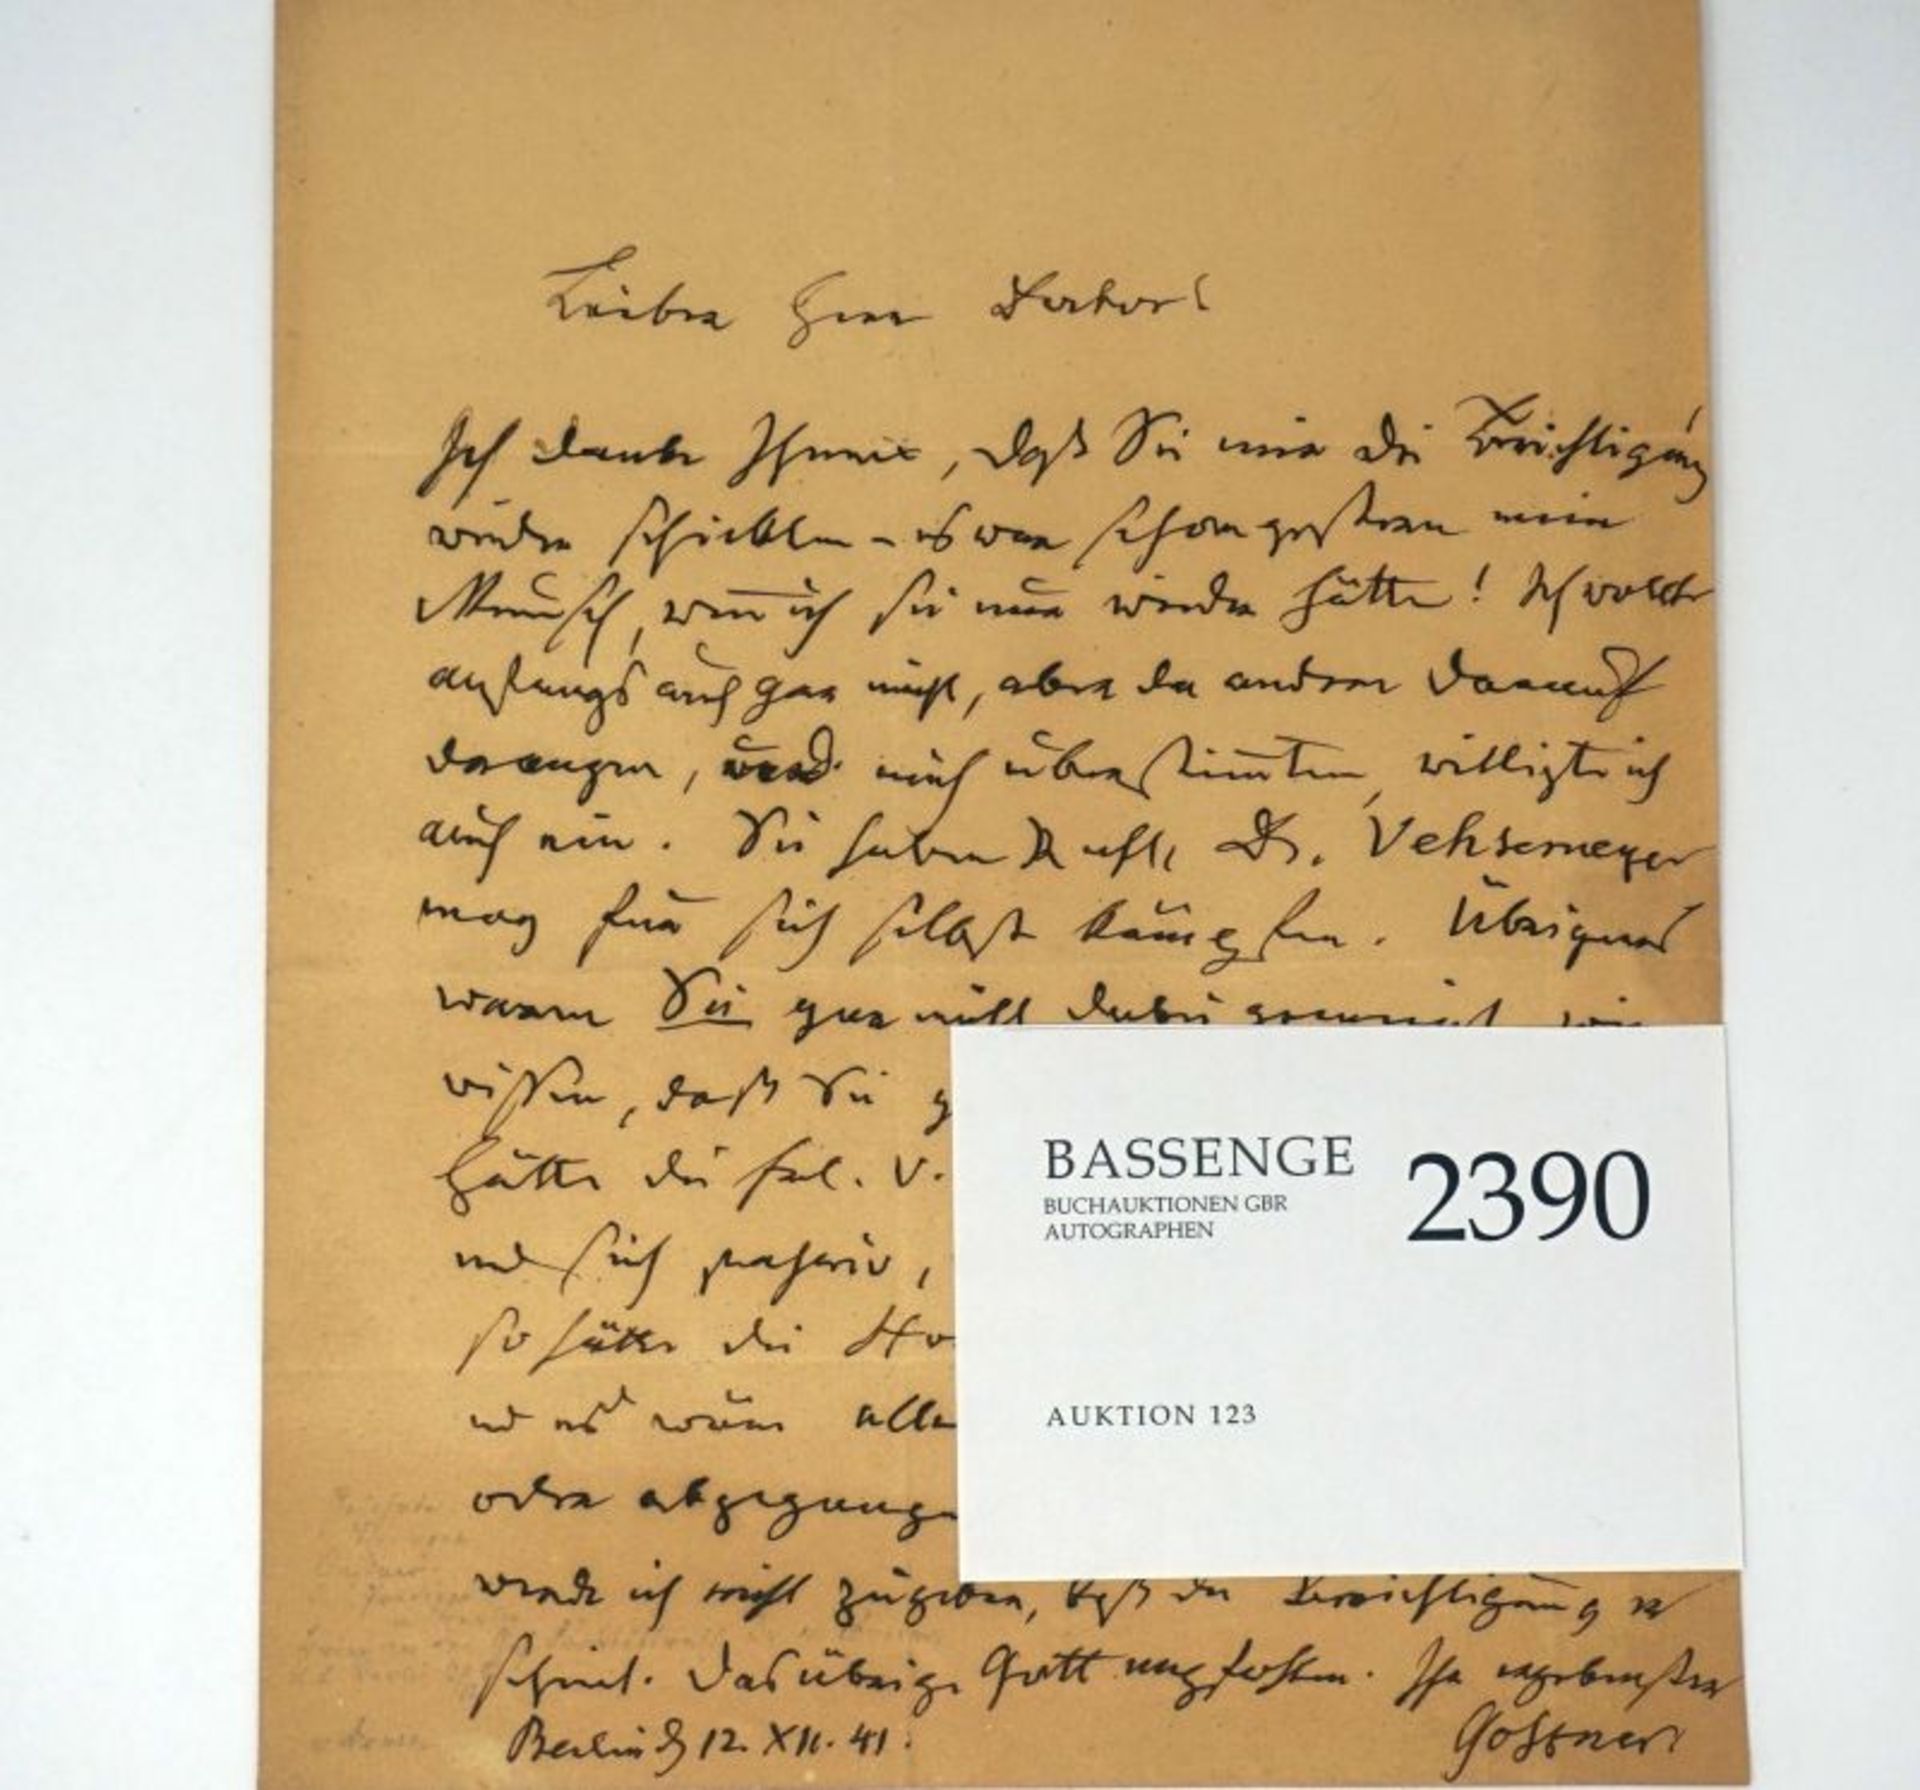 Lieber Herr Doctor!
Ich danke Ihnen, daß Sie mir die Berichtigung
wieder schickten – es war schon gestern mein
Wunsch, wenn ich sie nur wieder hätte! Ich wollte
anfangs auch gar nicht, aber da andere darauf
drangen, und mich überstimmten, willigte ich
auch ein. Sie haben Recht, Dr. Vehsemeyer
mag für sich selbst kämpfen. Übrigens
waren Sie gar nicht dabei gemeint, wir
wissen, daß Sie g
hätte die frl. V.
und sich
so hätte die Ho
und es wäre alle
oder abgegange
werde ich nicht zugeben, daß die Berichtigung er
scheint. Das übrige Gott empfohlen. Ihr ergebenster
Berlin d 12. XII. 41. Goßner
BASSENGE 2390
BUCHAUKTIONEN GBR
AUTOGRAPHEN
AUKTION 123